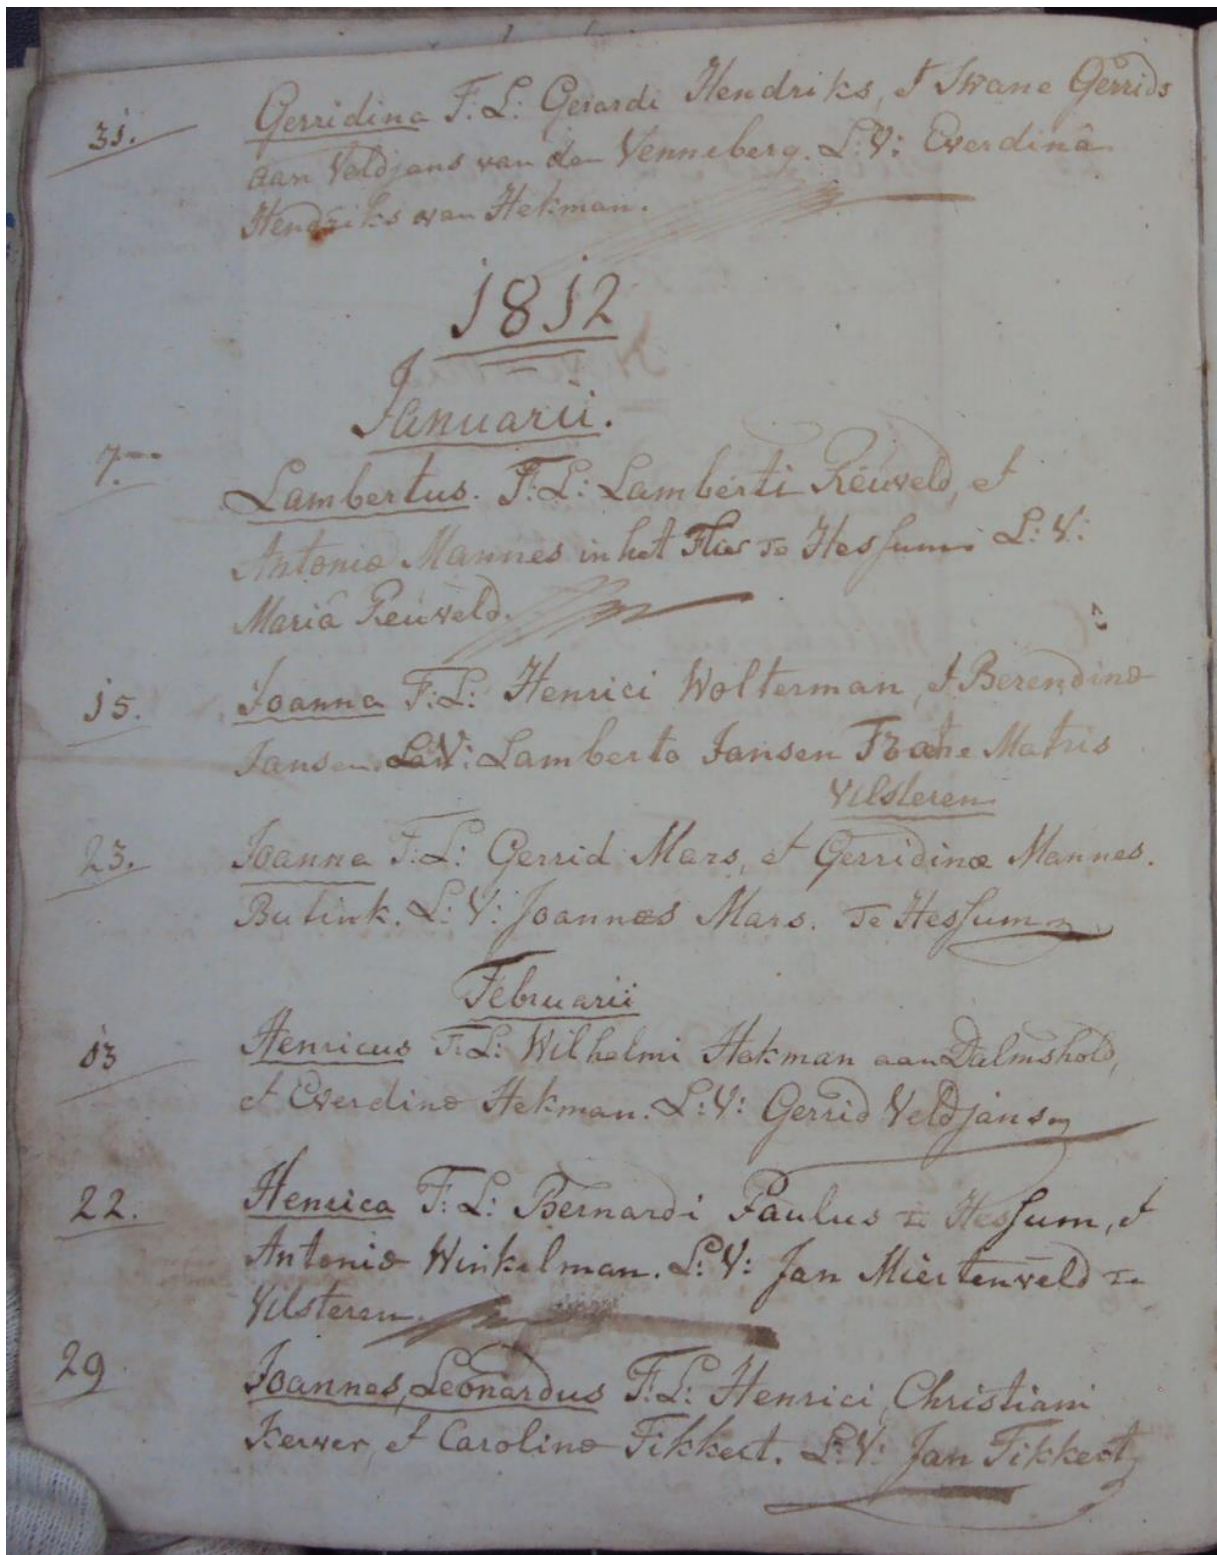 31. Gerridina F: L: Gerardi Hendriks, et Swane Gerrids
aan Veldjans van den Venneberg. L: V: Everdina
Hendriks van Hekman.
1812
Januarii.
7. Lambertus. F: L: Lamberti Reuveld, et
Antoniæ Mannes in het Flier Te Hessum L: V:
Maria Reuveld.
15. Joanna F: L: Henrici Wolterman, et Berendinæ
Jansen. L: V: Lamberto Jansen Fratre Matris
Vilsteren
23. Joanna F: L: Gerrid Mars, et Gerridinæ Mannes.
Butink. L: V: Joannes Mars. Te Hessum
Februarii
13 Henricus F: L: Wilhelmi Hekman aan Dalmshold,
et Everdinæ Hekman. L: V: Gerrid Veldjans
22. Henrica F: L: Bernardi Paulus Te Hessum, et
Antoniæ Winkelman. L: V: Jan Miertenveld Te
Vilsteren.
29 Joannes, Leonardus F: L: Henrici Christiani
Kerver, et Carolinæ Fikkert. L: V: Jan Fikkert